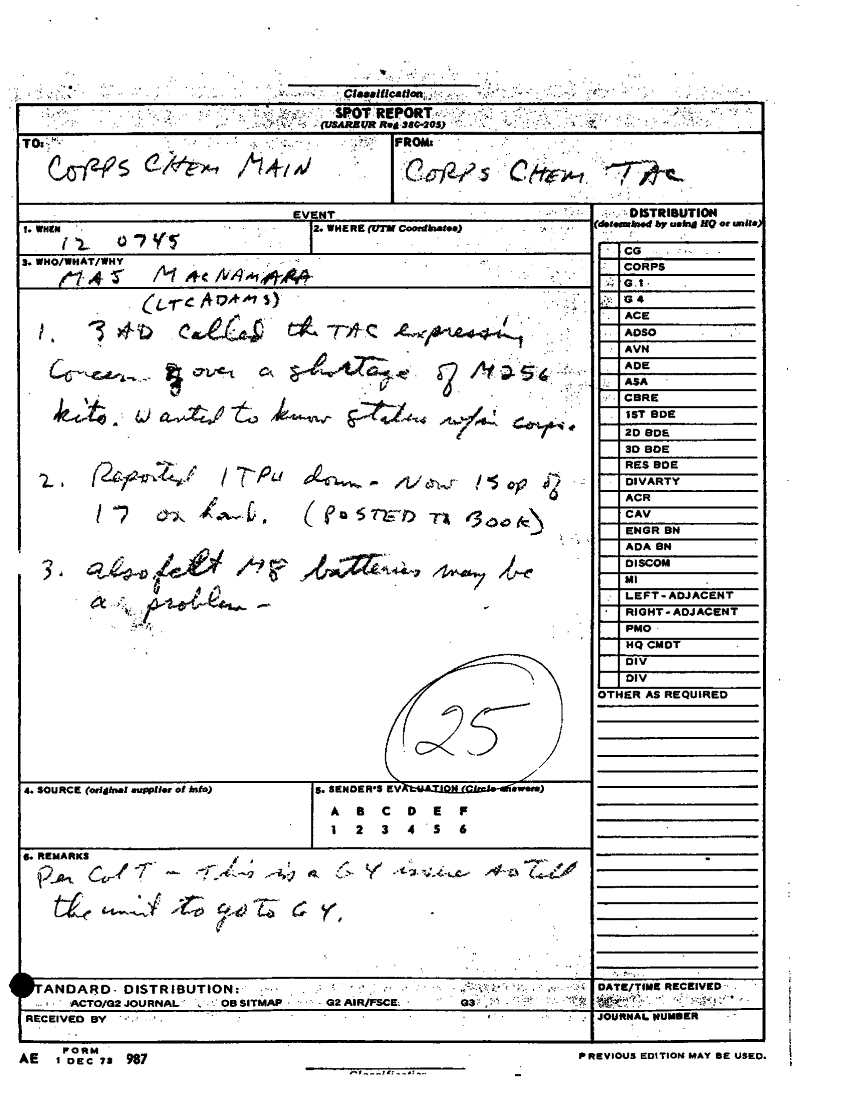 Classification
SPOT REPORT
(USAREUR Reg 380-205)
TO: CORPS CHEM MAIN
FROM: CORPS CHEM TAC
EVENT
1. WHEN 12 0745
2. WHERE (UTM Coordinates)
3. WHO/WHAT/WHY
MAJ MACNAMARA
(LTC ADAMS)
1. 3 AD called the TAC expressing
concern over a shortage of M256
kits. Wanted to know status w/in corps.
2. Reported 1 TPU down - Now 15 op of
17 on hand. (POSTED TO BOOK)
3. also felt M8 batteries may be
a problem -
25
4. SOURCE (original supplier of info)
5. SENDER'S EVALUATION (Circle answers)
A B C D E F
1 2 3 4 5 6
6. REMARKS
Per Col T - This is a G4 issue so tell
the unit to go to G4.
DISTRIBUTION
(determined by using HQ or units)
CG
CORPS
G 1
G 4
ACE
ADSO
AVN
ADE
ASA
CBRE
1ST BDE
2D BDE
3D BDE
RES BDE
DIVARTY
ACR
CAV
ENGR BN
ADA BN
DISCOM
MI
LEFT-ADJACENT
RIGHT-ADJACENT
PMO
HQ CMDT
DIV
DIV
OTHER AS REQUIRED
TANDARD DISTRIBUTION:
ACTO/G2 JOURNAL OB SITMAP G2 AIR/FSCE G3
RECEIVED BY
DATE/TIME RECEIVED
JOURNAL NUMBER
AE FORM 1 DEC 73 987
PREVIOUS EDITION MAY BE USED.
Classification